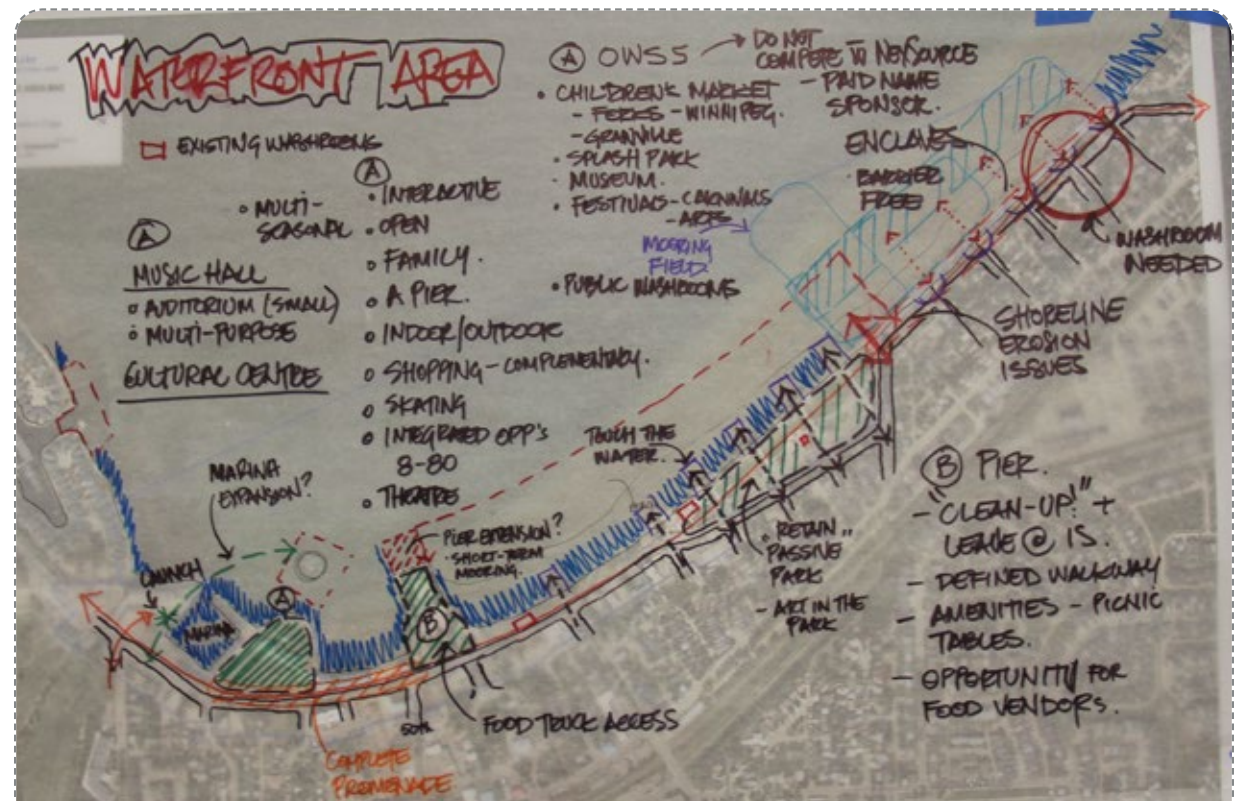 WATERFRONT AREA
EXISTING WASHROOMS
• MULTI-
SEASONAL
A
MUSIC HALL
• AUDITORIUM (SMALL)
• MULTI-PURPOSE
CULTURAL CENTRE
A
• INTERACTIVE
• OPEN
• FAMILY.
• A PIER.
• INDOOR/OUTDOOR
• SHOPPING - COMPLEMENTARY.
• SKATING
• INTEGRATED OPP'S
8-80
• THEATRE
A OWSS
DO NOT
COMPETE W NEWSOURCE
- PAID NAME
SPONSOR.
• CHILDREN'S MARKET
- FORKS - WINNIPEG.
- GRANVILLE
• SPLASH PARK
• MUSEUM.
• FESTIVALS - CARNIVALS
- ARTS
MOORING
FIELD
• PUBLIC WASHROOMS
ENCLAVES
BARRIER
FREE
WASHROOM
NEEDED
SHORELINE
EROSION
ISSUES
MARINA
EXPANSION?
LAUNCH
MARINA
A
PIER EXTENSION?
• SHORT-TERM
MOORING.
B
TOUCH THE
WATER.
• RETAIN
PASSIVE
PARK
- ART IN THE
PARK
FOOD TRUCK ACCESS
COMPLETE
PROMENADE
B PIER.
- "CLEAN-UP!" +
LEAVE @ IS.
- DEFINED WALKWAY
- AMENITIES - PICNIC
TABLES.
- OPPORTUNITY FOR
FOOD VENDORS.